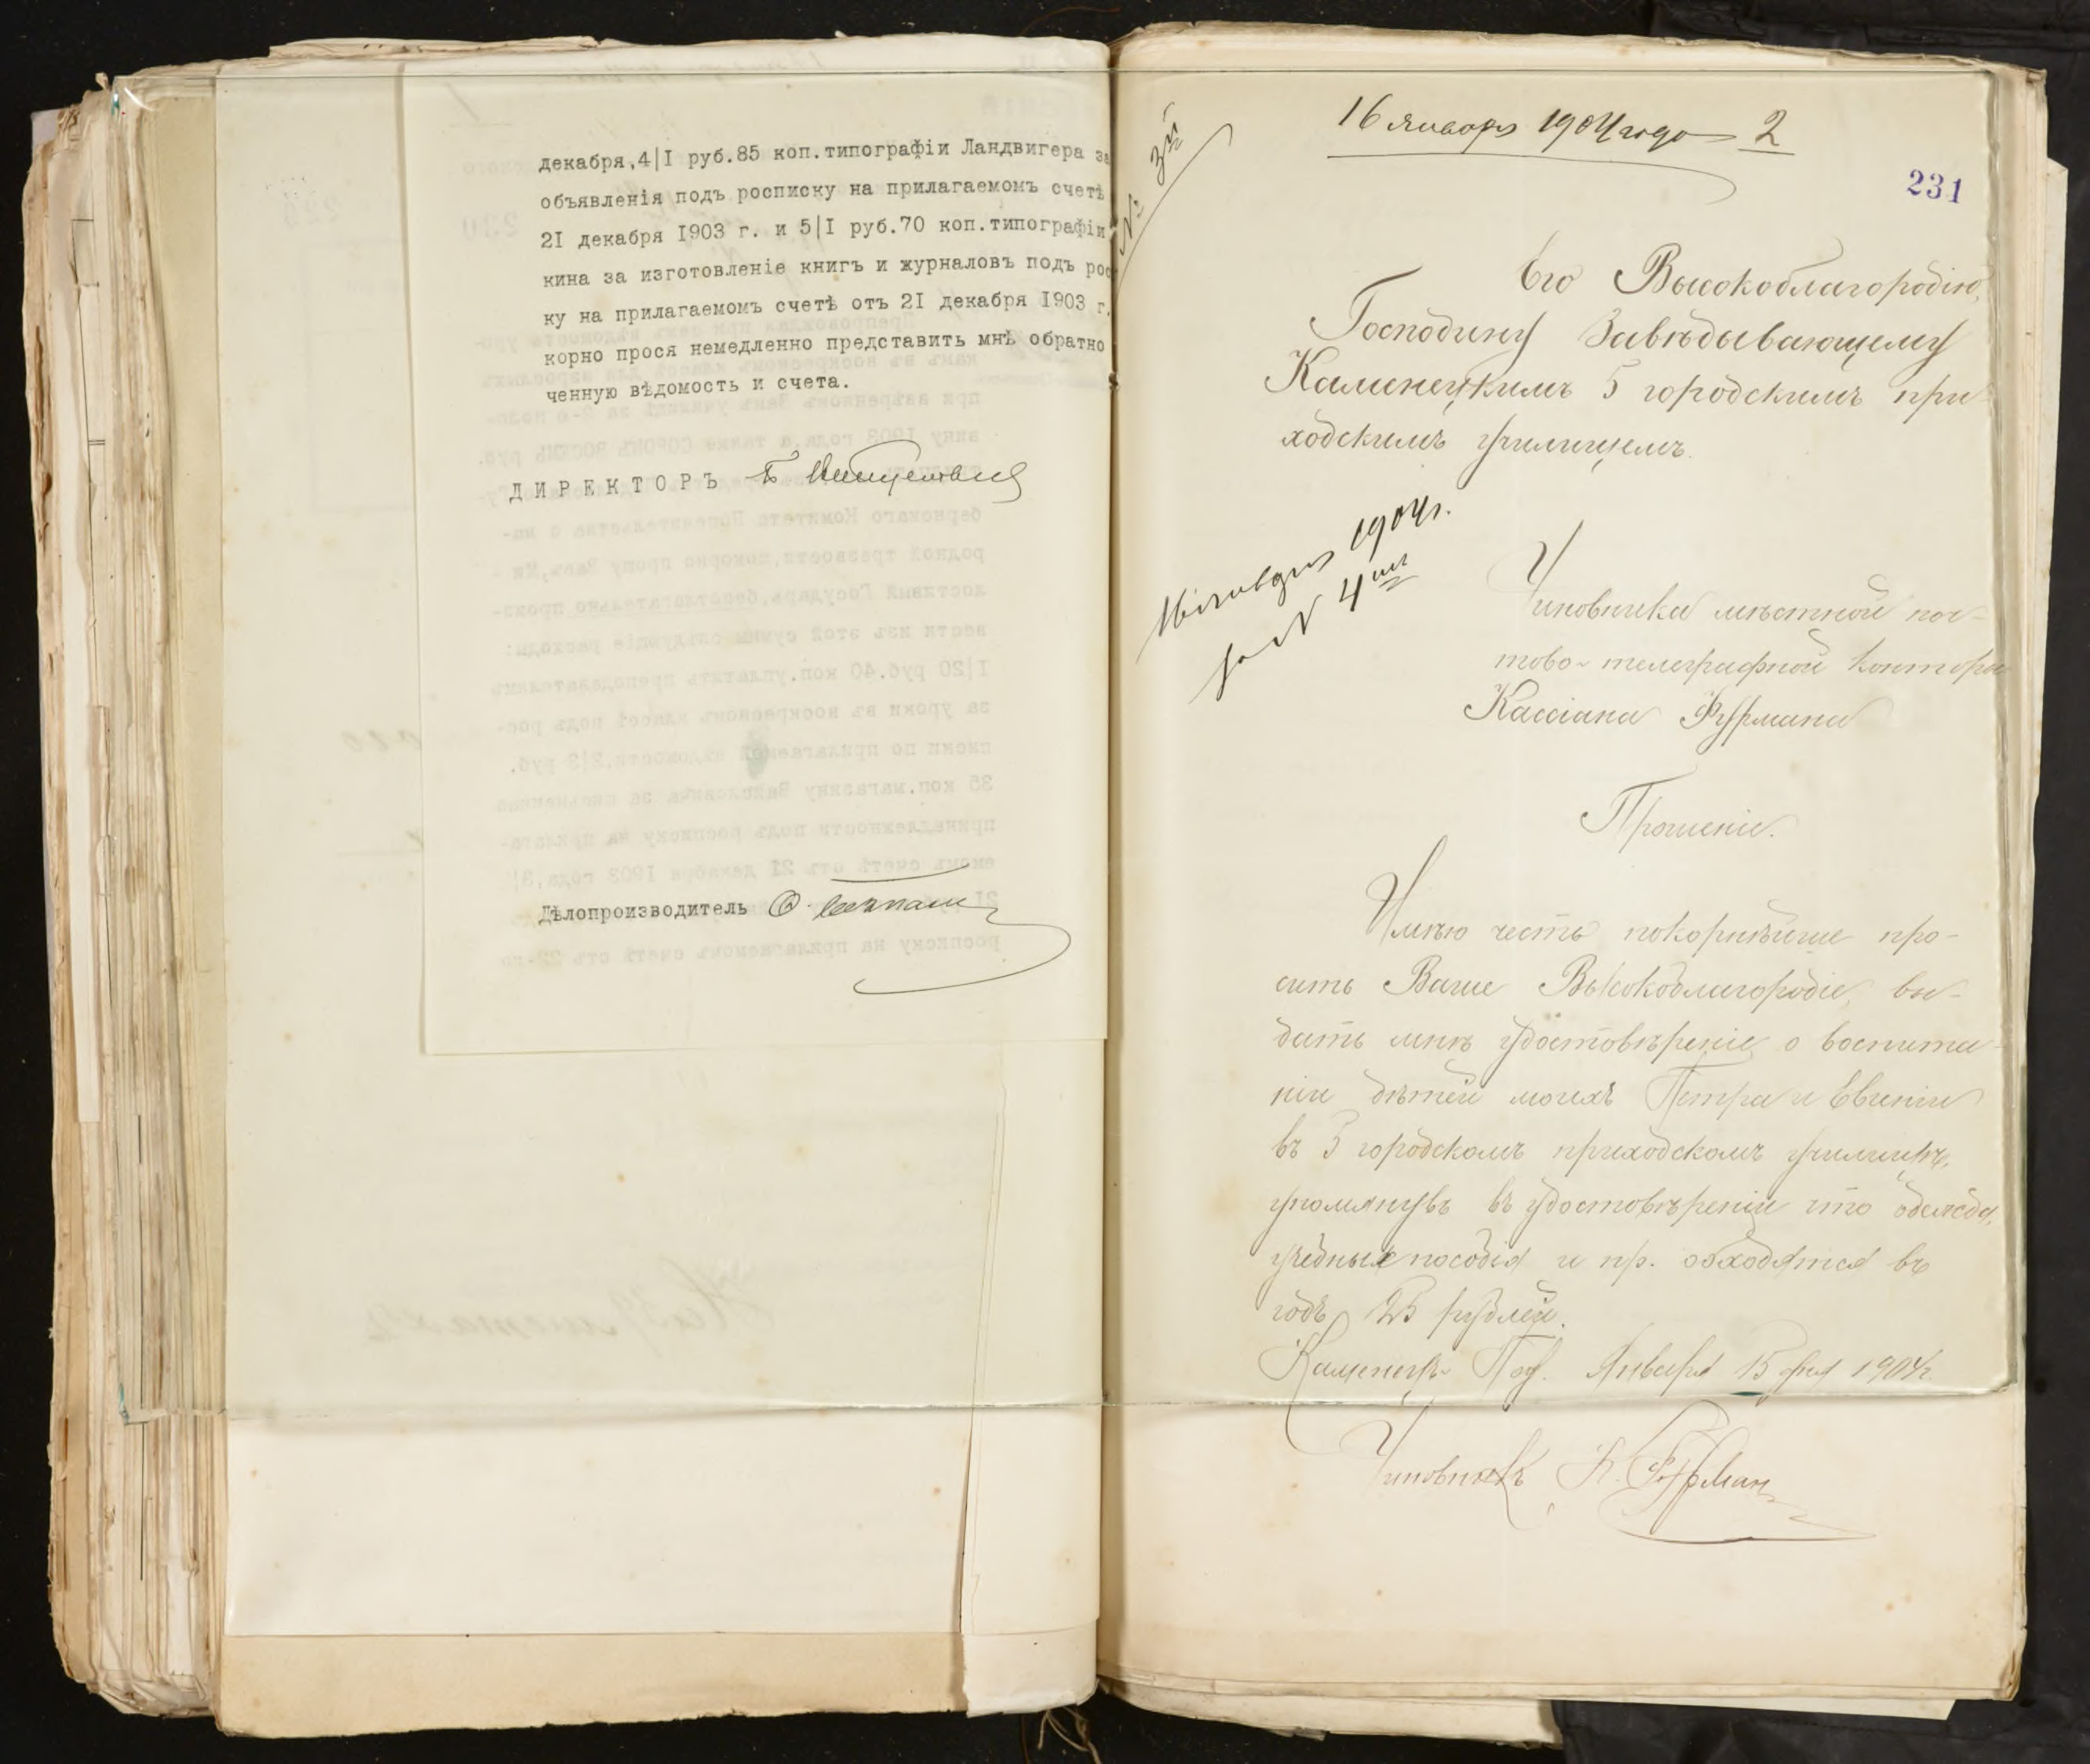 декабря,4|I руб.85 коп.типографіи Ландвигера за
объявленія подъ росписку на прилагаемомъ счетѣ
2I декабря I903 г. и 5|I руб.70 коп.типографіи
кина за изготовленіе книгъ и журналовъ подъ рос
ку на прилагаемомъ счетѣ отъ 2I декабря I903 г.
корно прося немедленно представить мнѣ обратно
ченную вѣдомость и счета.
ДИРЕКТОРЪ
Дѣлопроизводитель
16 января 1904 года 2
№ 3й
231
Его Высокоблагородію,
Господину Завѣдывающему
Каменецкимъ 5 городскимъ при
ходскимъ училищемъ.
16 января 1904 г.
за № 4мъ
Чиновника мѣстной поч-
тово-телеграфной конторы
Кассіана Фурмана
Прошеніе.
Имѣю честь покорнѣйше про-
сить Ваше Высокоблагородіе, вы-
дать мнѣ удостовѣреніе о воспита-
ніи дѣтей моихъ Петра и Евгеніи
въ 5 городскомъ приходскомъ училищѣ,
упомянувъ въ удостовѣреніи что одежда,
учебныя пособія и пр. обходятся въ
годъ 25 рублей.
Каменецъ-Под. Января 15 дня 1904 г.
Чиновникъ К. Фурман